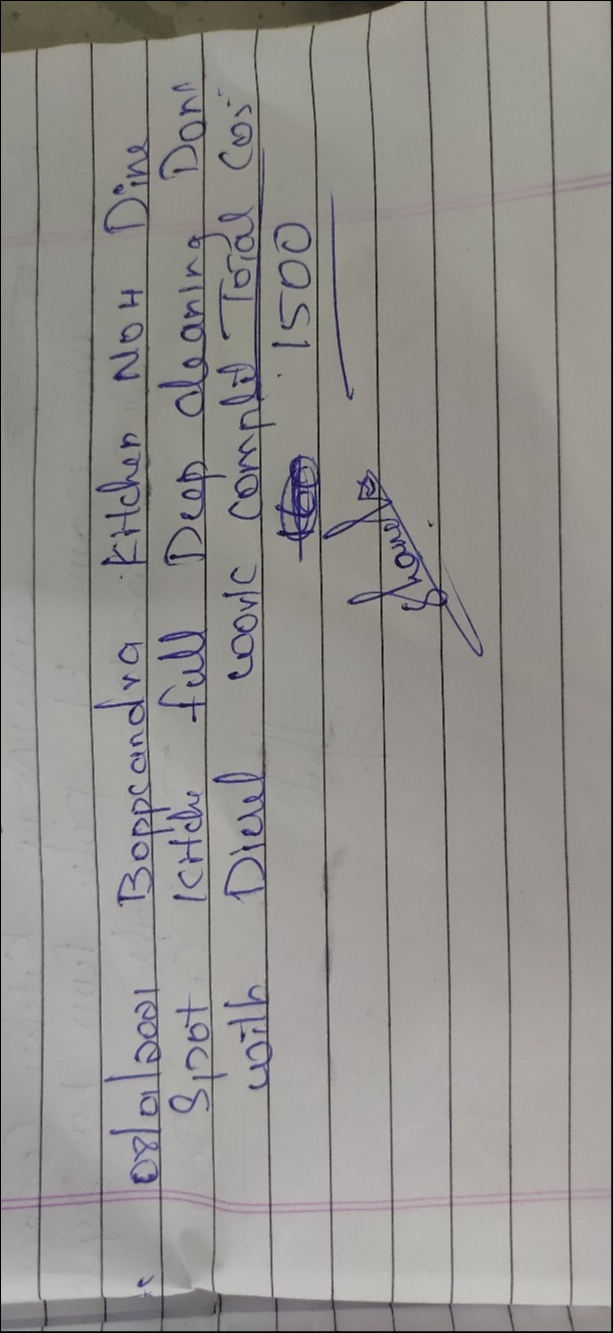 08/01/2021 Boppcandra Kitchen No H Dine
Spot Kitche full Deep cleaning Donn
with Diesel woovic complit Total Cos
1500